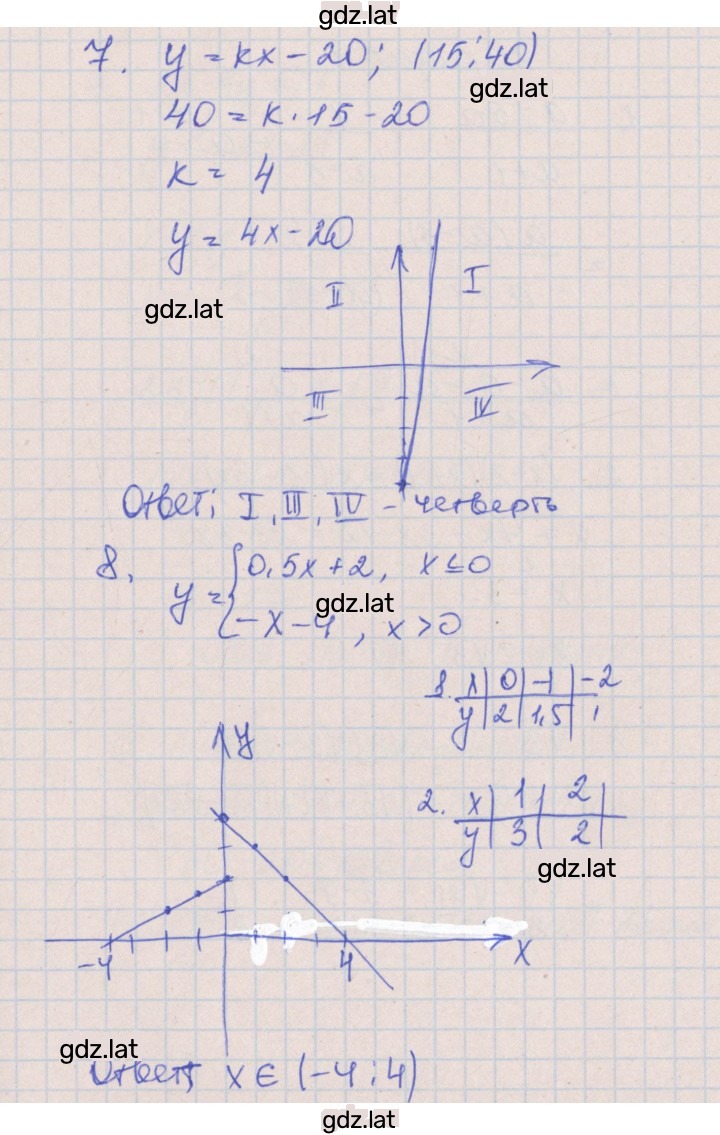 gdz.lat
7. y = kx - 20; (15;40)
gdz.lat
40 = k · 15 - 20
k = 4
y = 4x - 20
gdz.lat
II I
III IV
Ответ: I, III, IV - четверть
8. y = { 0,5x + 2, x ≤ 0
gdz.lat
-x - 4, x > 0
1. x | 0 | -1 | -2
y | 2 | 1,5 | 1
y
2. x | 1 | 2
y | 3 | 2
gdz.lat
-4 4 x
gdz.lat
Ответ: x ∈ (-4; 4)
gdz.lat